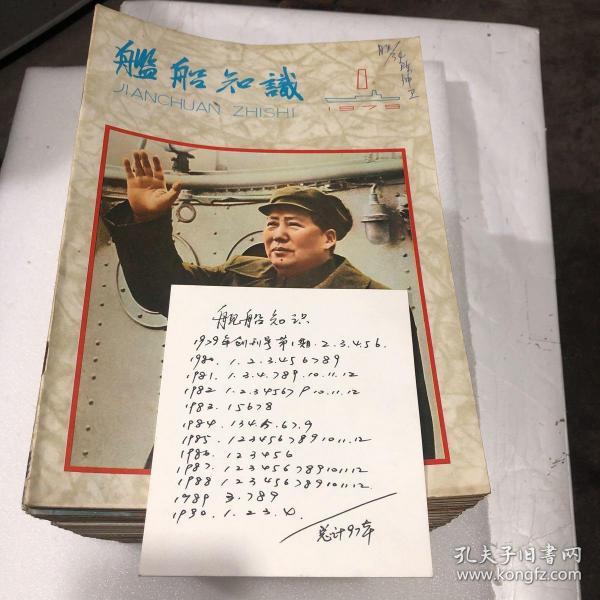 艦船知識
JIANCHUAN ZHISHI
1
1979
舰船知识
1979年创刊号第1期.2.3.4.5.6.
1980. 1.2.3.4.5.6.7.8.9
1981. 1.3.4.7.8.9.10.11.12
1982 1.2.3.4.5.6.7.9.10.11.12
1983. 1 5 6 7 8
1984. 1 3 4. 5. 6. 7. 9
1985. 1 2 3 4 5 6 7 8 9 10 11.12
1986. 1 2 3 4 5 6
1987. 1 2 3 4 5 6 7 8 9 10 11.12
1988 1 2 3 4 5 6 7 8 9 10 11 12.
1989 3.7 8 9
1990. 1.2.3.4.
总计97本
孔夫子旧书网
www.kongfz.com